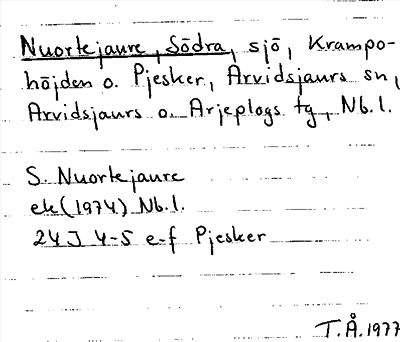 Nuortejaure, Södra, sjö, Krampo-
höjden o. Pjesker, Arvidsjaurs sn,
Arvidsjaurs o. Arjeplogs tg, Nb.l.
S. Nuortejaure
ek (1974) Nb.l.
24J 4-5 e-f Pjesker
T.Å. 1977